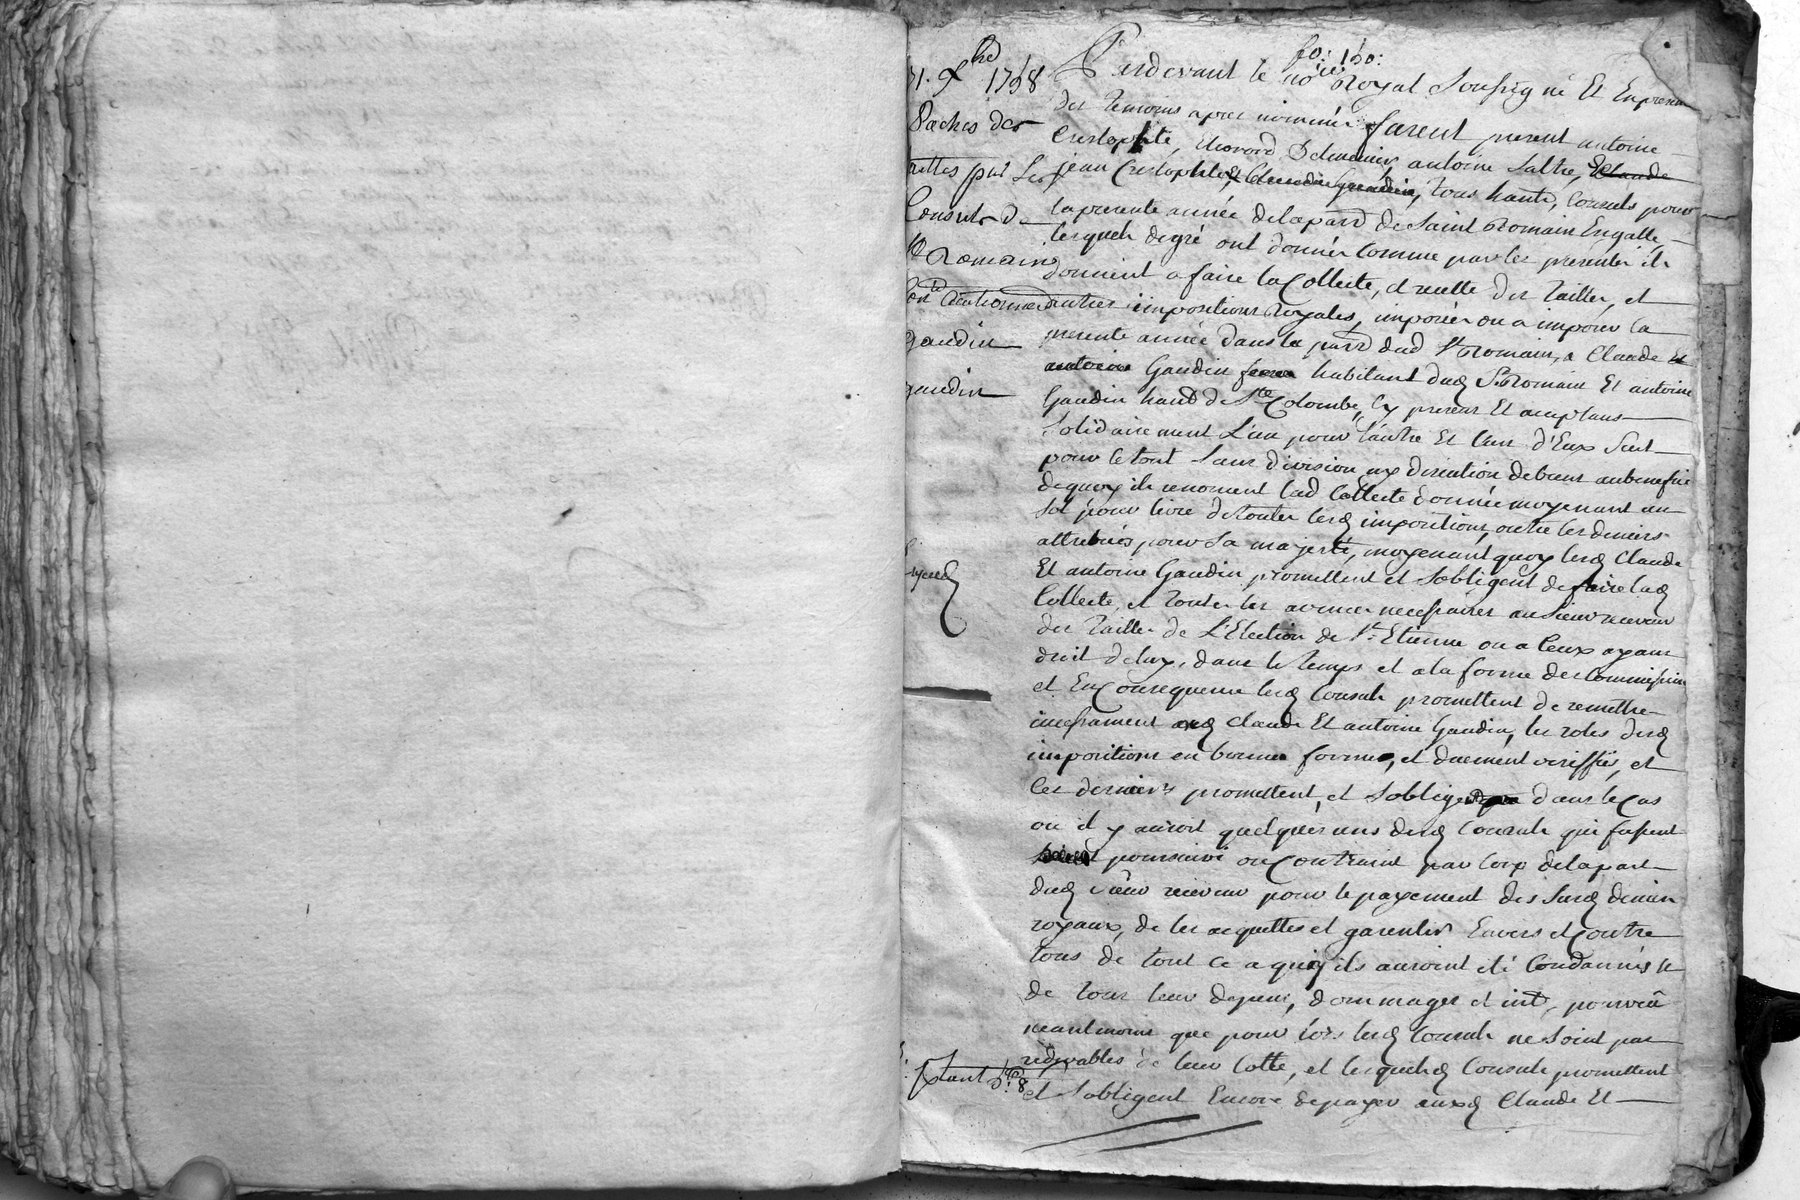 fo: 150:
1. Xbre 1758
Paches des
tailles par Les
Consuls de
St Romain
a Claude et antoine
gaudin
gaudin
Pardevant le no.re Royal Soussigné Et En presence
des temoins apres nommés furent present antoine
Crestophle, antoine Salhe, Claude
jean Crestophle, tous habts, Consuls pour
la presente année delaparr de Saint Romain Engalle
lesquels degré ont donnés comme par les presentes ils
donnent a faire la Collecte, et recette des Tailles, et
autres impositions Royales, imposées ou a imposer la
presente année dans la parr dud St Romain, a Claude et
antoine Gaudin habitant dud St Romain Et antoine
Gaudin habt de Ste Colombe, Cy presens Et acceptans
Solidairement L'un pour l'autre Et l'un d'Eux Seul
pour le tout Sans division ny discution debiens aubenefice
dequoy ils renoncent lad Collecte donnée moyenant un
Sol pour livre de toutes lesd impositions, outre les deniers
attribués pour Sa majesté, moyenant quoy lesd Claude
Et antoine Gaudin, promettent et Sobligent de faire lad
Collecte, et toutes les avances necessaires au Sieur receveur
des Tailles de L'Election de St Etienne ou a Ceux ayant
droit deluy, dans le temps et ala forme des Commissions
et En Consequence lesd Consuls promettent de remettre
incessament auxd Claude Et antoine Gaudin, les roles desd
impositions en bonnes formes, et duement veriffiés, et
Ces derniers promettent, et Sobligent dans le Cas
ou il y auroit quelques uns desd Consuls qui fussent
poursuivi ou Contraint par Corps delapart
dud Sieur receveur pour le payement des Susd deniers
royaux, de les acquittes et garentir Envers et Contre
tous de tout ce a quoy ils auroint été Condannés et
de tous leur depens, dommages et int., pourveu
neantmoins que pour lors lesd Consuls ne Soint pas
redevables de leur Cotte, et lesquels Consuls promettent
et Sobligent Encore depayer auxd Claude Et